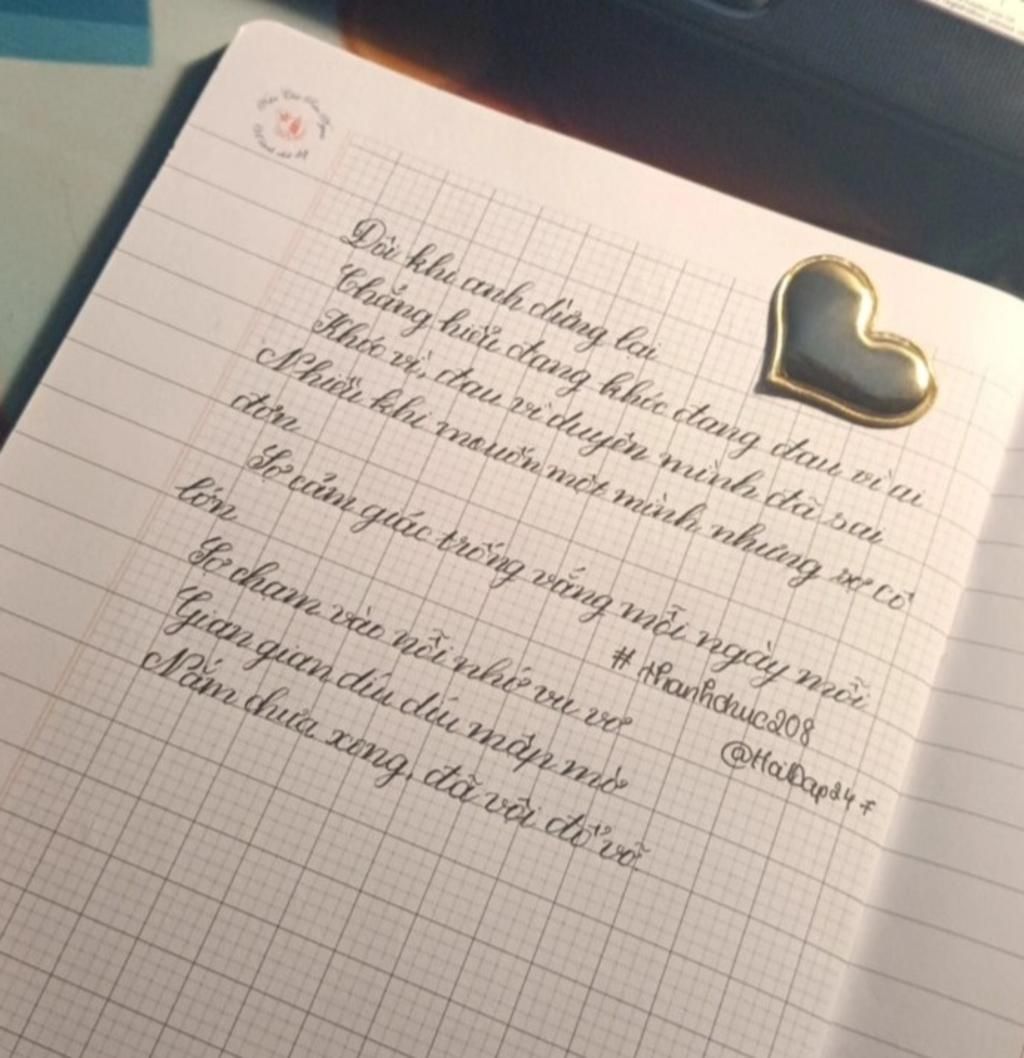 Đôi khi anh dừng lại
Chẳng hiểu đang khóc đang đau vì ai
Khóc vì, đau vì duyên mình đã sai
Nhiều khi muốn một mình nhưng sợ cô
đơn
Sợ cảm giác trống vắng mỗi ngày mỗi
lớn
Sợ chạm vào nỗi nhớ vu vơ
Gian gian díu díu mập mờ
Nắm chưa xong, đã vội đổ vỡ.
# thanhchuc208
@HoiDap247